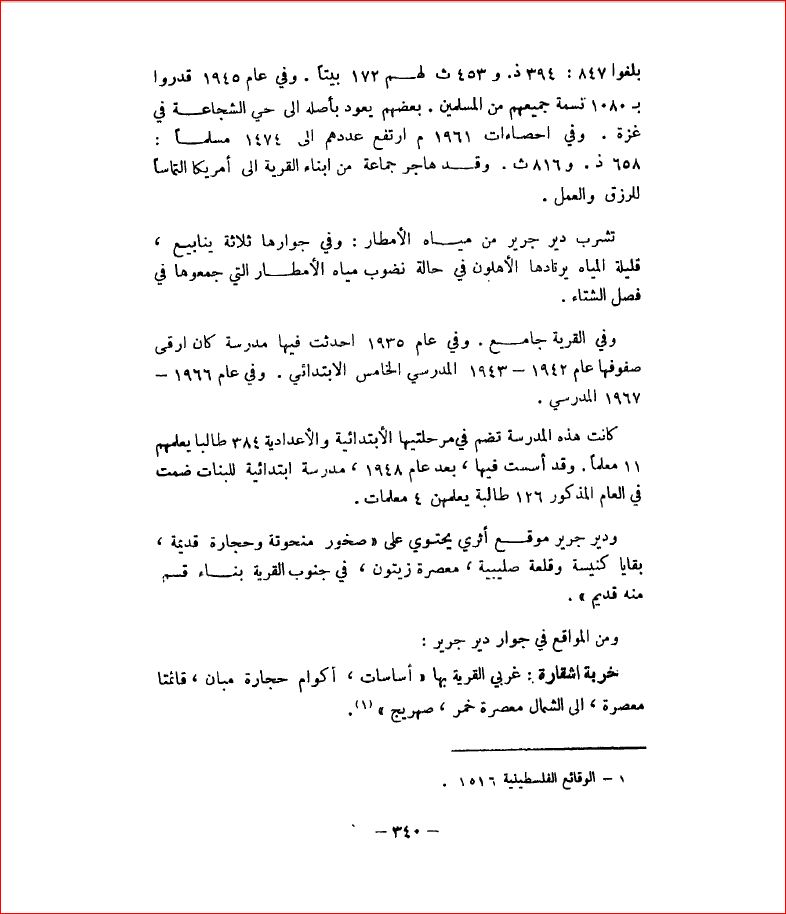 بلغوا ٨٤٧ : ٣٩٤ ذ. و ٤٥٣ ث لهم ١٧٢ بيتاً . وفي عام ١٩٤٥ قدروا
بـ ١٠٨٠ نسمة جميعهم من المسلمين . بعضهم يعود بأصله الى حي الشجاعة في
غزة . وفي احصاءات ١٩٦١ م ارتفع عددهم الى ١٤٧٤ مسلماً :
٦٥٨ ذ. و ٨١٦ ث . وقد هاجر جماعة من ابناء القرية الى أمريكا التماساً
للرزق والعمل .
تشرب دير جرير من مياه الأمطار : وفي جوارها ثلاثة ينابيع ،
قليلة المياه يرتادها الأهلون في حالة نضوب مياه الأمطار التي جمعوها في
فصل الشتاء .
وفي القرية جامع . وفي عام ١٩٣٥ احدثت فيها مدرسة كان ارقى
صفوفها عام ١٩٤٢ – ١٩٤٣ المدرسي الخامس الابتدائي . وفي عام ١٩٦٦ –
١٩٦٧ المدرسي .
كانت هذه المدرسة تضم في مرحلتيها الأبتدائية والأعدادية ٣٨٤ طالبا يعلمهم
١١ معلماً . وقد أسست فيها ، بعد عام ١٩٤٨ ، مدرسة ابتدائية للبنات ضمت
في العام المذكور ١٢٦ طالبة يعلمهن ٤ معلمات .
ودير جرير موقع أثري يحتوي على « صخور منحوتة وحجارة قديمة ،
بقايا كنيسة وقلعة صليبية ، معصرة زيتون ، في جنوب القرية بناء قسم
منه قديم » .
ومن المواقع في جوار دير جرير :
خربة اشقارة : غربي القرية بها « أساسات ، أكوام حجارة مبان ، قائمتا
معصرة ، الى الشمال معصرة خمر ، صهريج » (١).
١ – الوقائع الفلسطينية ١٥١٦ .
– ٣٤٠ –